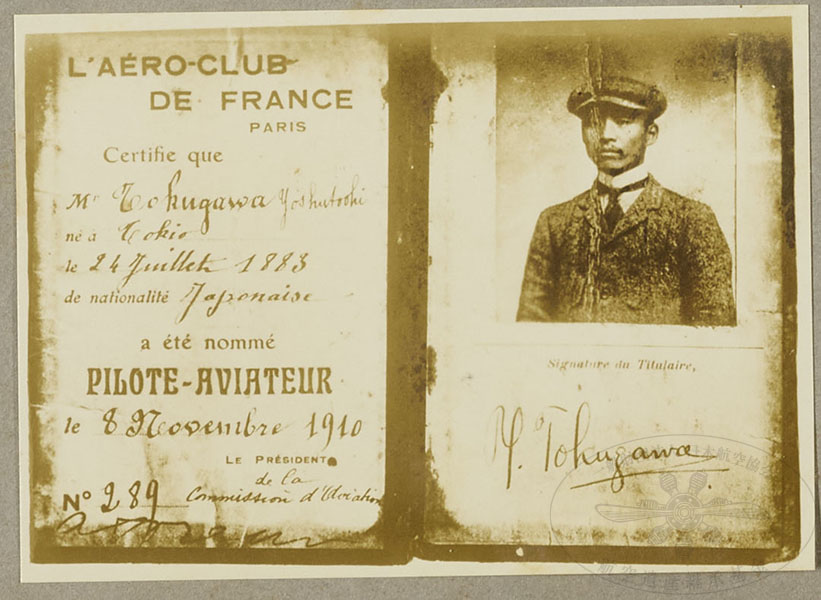 L'AÉRO-CLUB
DE FRANCE
PARIS
Certifie que
Mr Tokugawa Yoshutoshi
né à Tokio
le 24 Juillet 1883
de nationalité Japonaise
a été nommé
PILOTE-AVIATEUR
le 8 Novembre 1910
LE PRÉSIDENT
de la
Commission d'Aviation
No 289
Signature du Titulaire,
Y. Tokugawa